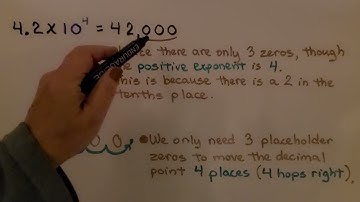 4.2 x 10⁴ = 42,000
there are only 3 zeros, though
positive exponent is 4.
This is because there is a 2 in the
tenths place.
We only need 3 placeholder
zeros to move the decimal
point 4 places (4 hops right).
ENDURAGLIDE